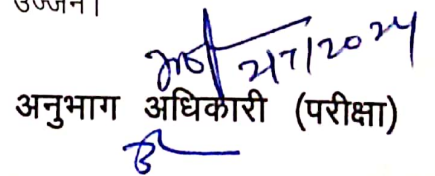 उज्जैन।
2/7/2024
अनुभाग अधिकारी (परीक्षा)